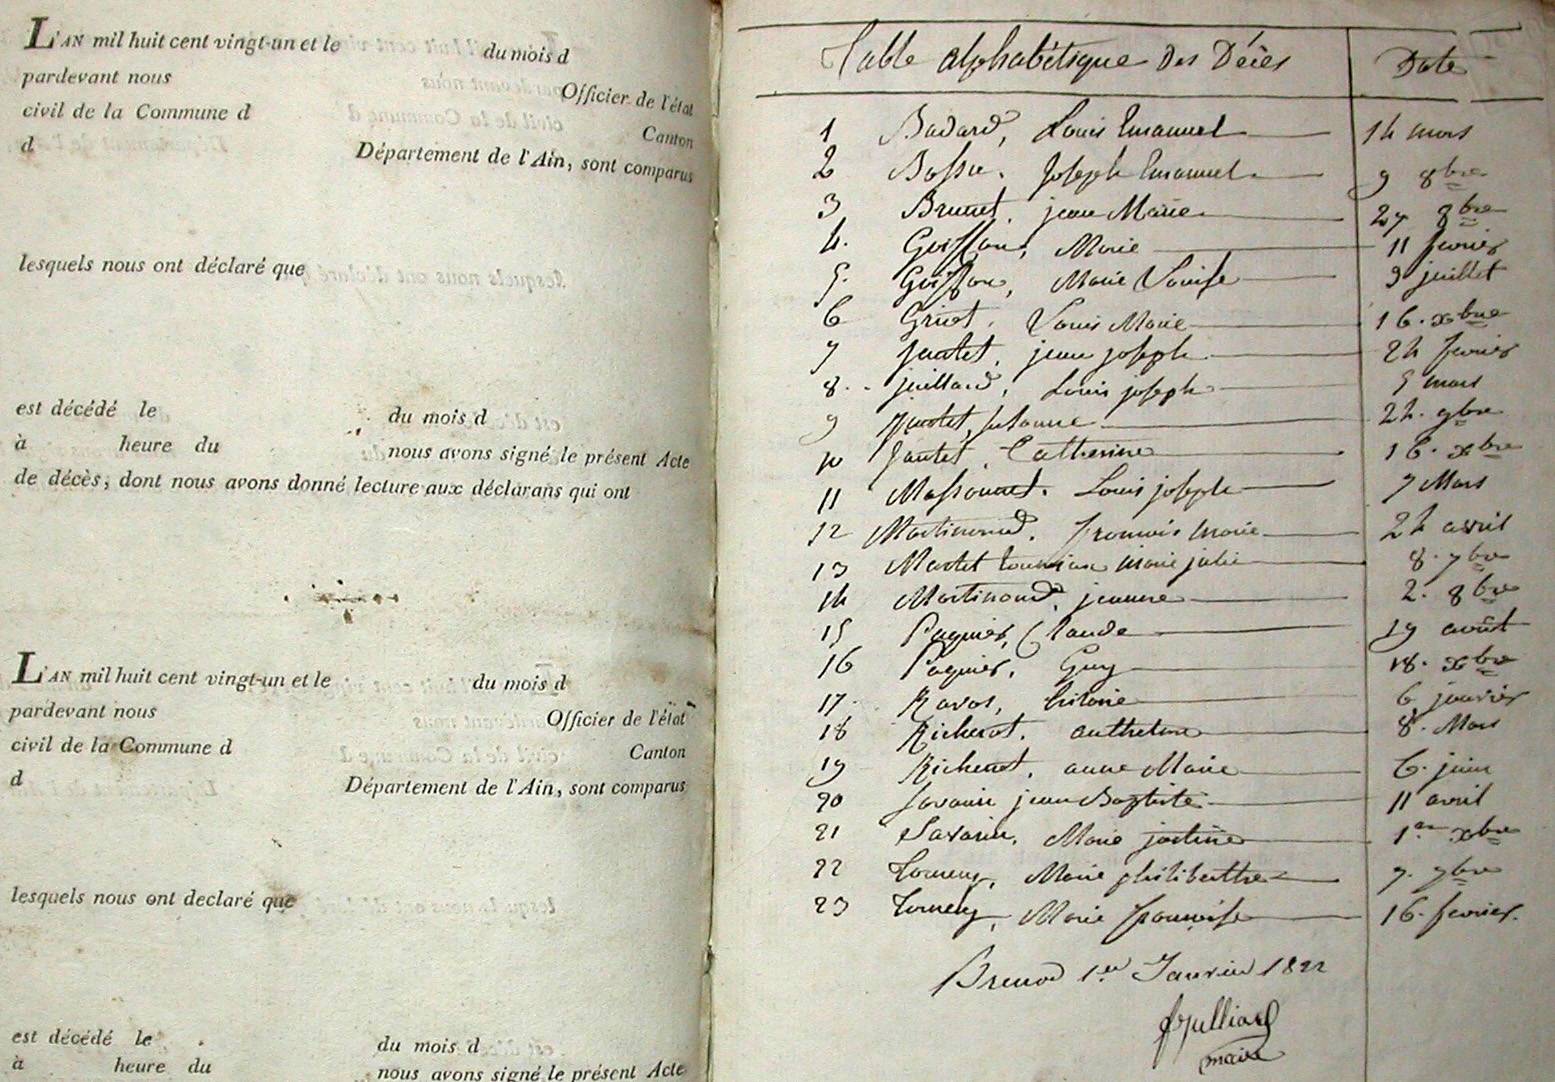 L'AN mil huit cent vingt-un et le du mois d
pardevant nous Officier de l'état
civil de la Commune d Canton
d Département de l'Ain, sont comparus
lesquels nous ont déclaré que
est décédé le du mois d
à heure du nous avons signé le présent Acte
de décès, dont nous avons donné lecture aux déclarans qui ont
L'AN mil huit cent vingt-un et le du mois d
pardevant nous Officier de l'état
civil de la Commune d Canton
d Département de l'Ain, sont comparus
lesquels nous ont declaré que
est décédé le du mois d
à heure du nous avons signé le présent Acte
Table alphabétique des Décès Date
1 Badard, Louis Emanuel 14 mars
2 Bossu. Joseph Emanuel 9 8bre
3 Brunet. jean Marie 27 8bre
4. Goiffon, Marie 11 fevrier
5. Goiffon, Marie Louise 9 juillet
6 Griot. Louis Marie 16. xbre
7 jantet. jean joseph 24 fevrier
8. juillard, Louis joseph 5 mars
9 jantet, susanne 24. 9bre
10 jantet, Catherine 16. xbre
11 Massonnet. Louis joseph 7 Mars
12 Martinand. francois marie 24 avril
13 Martel marie julie 8. 7bre
14 Martinand, jeanne 2. 8bre
15 Paquier, Claude 19 août
16 Paquier, Guy 18. xbre
17. Ravot, 6 janvier
18 Richerot. anthelme 8. Mars
19 Richerot. anne Marie 6. juin
20 Savarin jean Baptiste 11 avril
21 Savarin. Marie justine 1er xbre
22 Tornery, Marie philiberthe 7. 7bre
23 Tornery, Marie francoise 16. fevrier.
Brenod 1er Janvier 1822
Julliard
maire